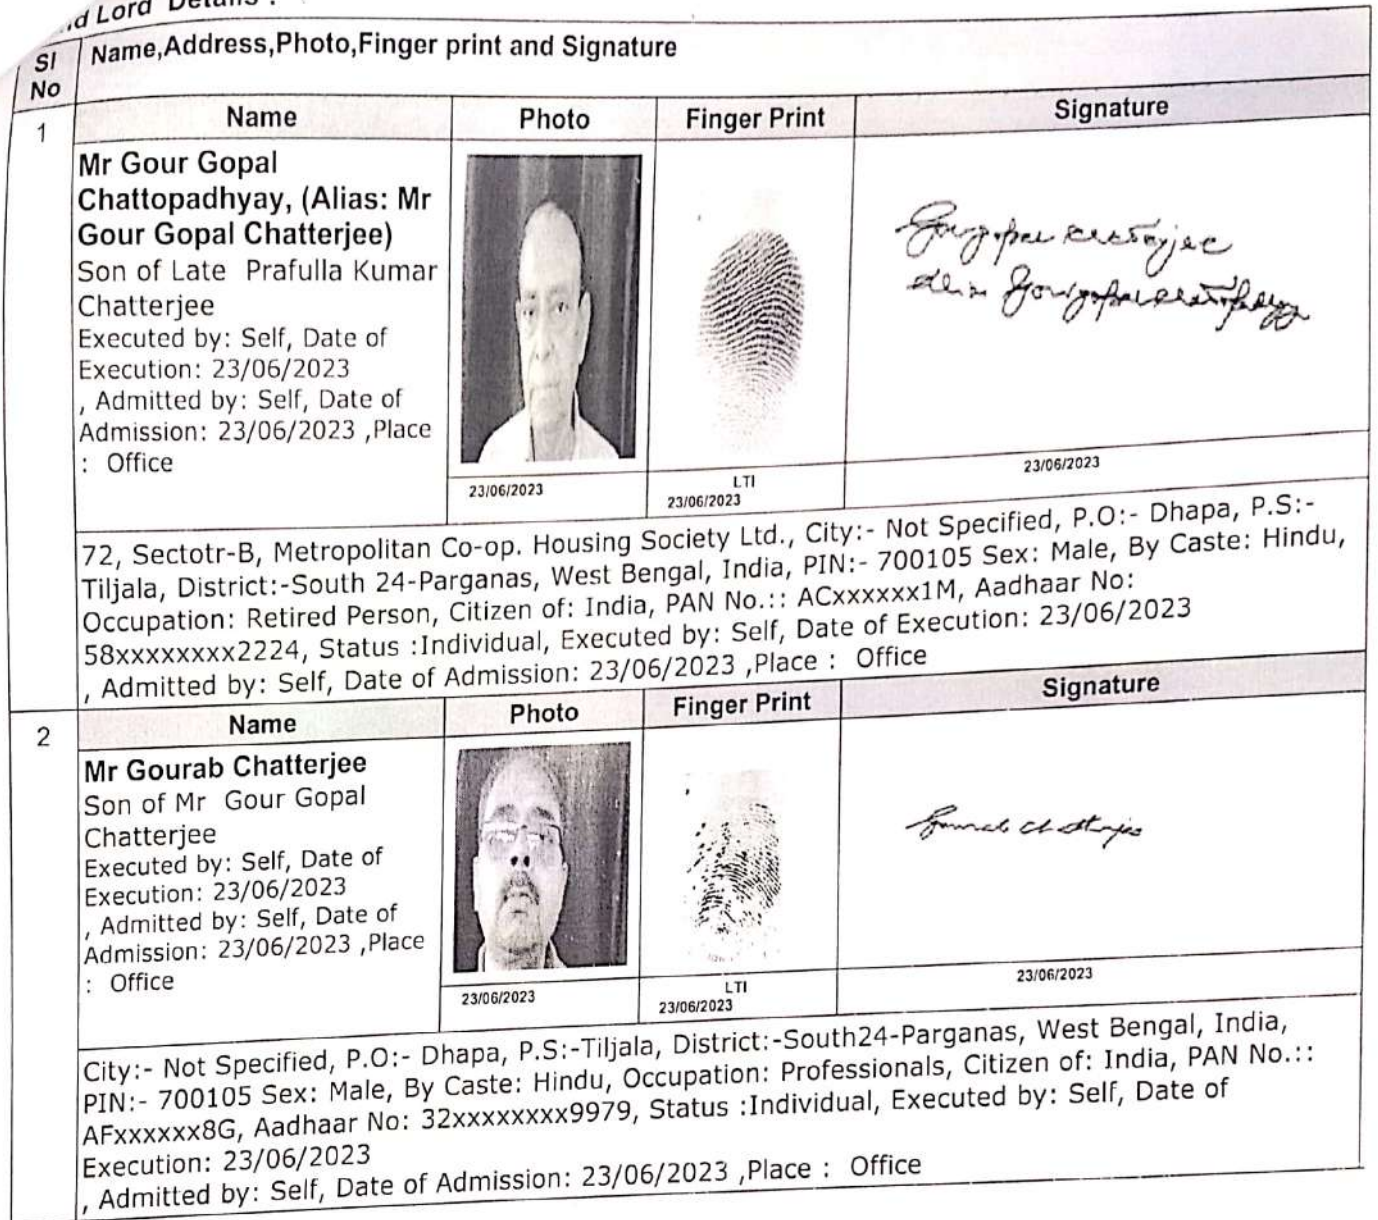 nd Lord Details :
Sl No
Name,Address,Photo,Finger print and Signature
1
Name
Photo
Finger Print
Signature
Mr Gour Gopal
Chattopadhyay, (Alias: Mr
Gour Gopal Chatterjee)
Son of Late Prafulla Kumar
Chatterjee
Executed by: Self, Date of
Execution: 23/06/2023
, Admitted by: Self, Date of
Admission: 23/06/2023 ,Place
: Office
23/06/2023
LTI
23/06/2023
23/06/2023
72, Sectotr-B, Metropolitan Co-op. Housing Society Ltd., City:- Not Specified, P.O:- Dhapa, P.S:-
Tiljala, District:-South 24-Parganas, West Bengal, India, PIN:- 700105 Sex: Male, By Caste: Hindu,
Occupation: Retired Person, Citizen of: India, PAN No.:: ACxxxxxx1M, Aadhaar No:
58xxxxxxxx2224, Status :Individual, Executed by: Self, Date of Execution: 23/06/2023
, Admitted by: Self, Date of Admission: 23/06/2023 ,Place : Office
2
Name
Photo
Finger Print
Signature
Mr Gourab Chatterjee
Son of Mr Gour Gopal
Chatterjee
Executed by: Self, Date of
Execution: 23/06/2023
, Admitted by: Self, Date of
Admission: 23/06/2023 ,Place
: Office
Gourab Chatterjee
23/06/2023
LTI
23/06/2023
23/06/2023
City:- Not Specified, P.O:- Dhapa, P.S:-Tiljala, District:-South24-Parganas, West Bengal, India,
PIN:- 700105 Sex: Male, By Caste: Hindu, Occupation: Professionals, Citizen of: India, PAN No.::
AFxxxxxx8G, Aadhaar No: 32xxxxxxxx9979, Status :Individual, Executed by: Self, Date of
Execution: 23/06/2023
, Admitted by: Self, Date of Admission: 23/06/2023 ,Place : Office